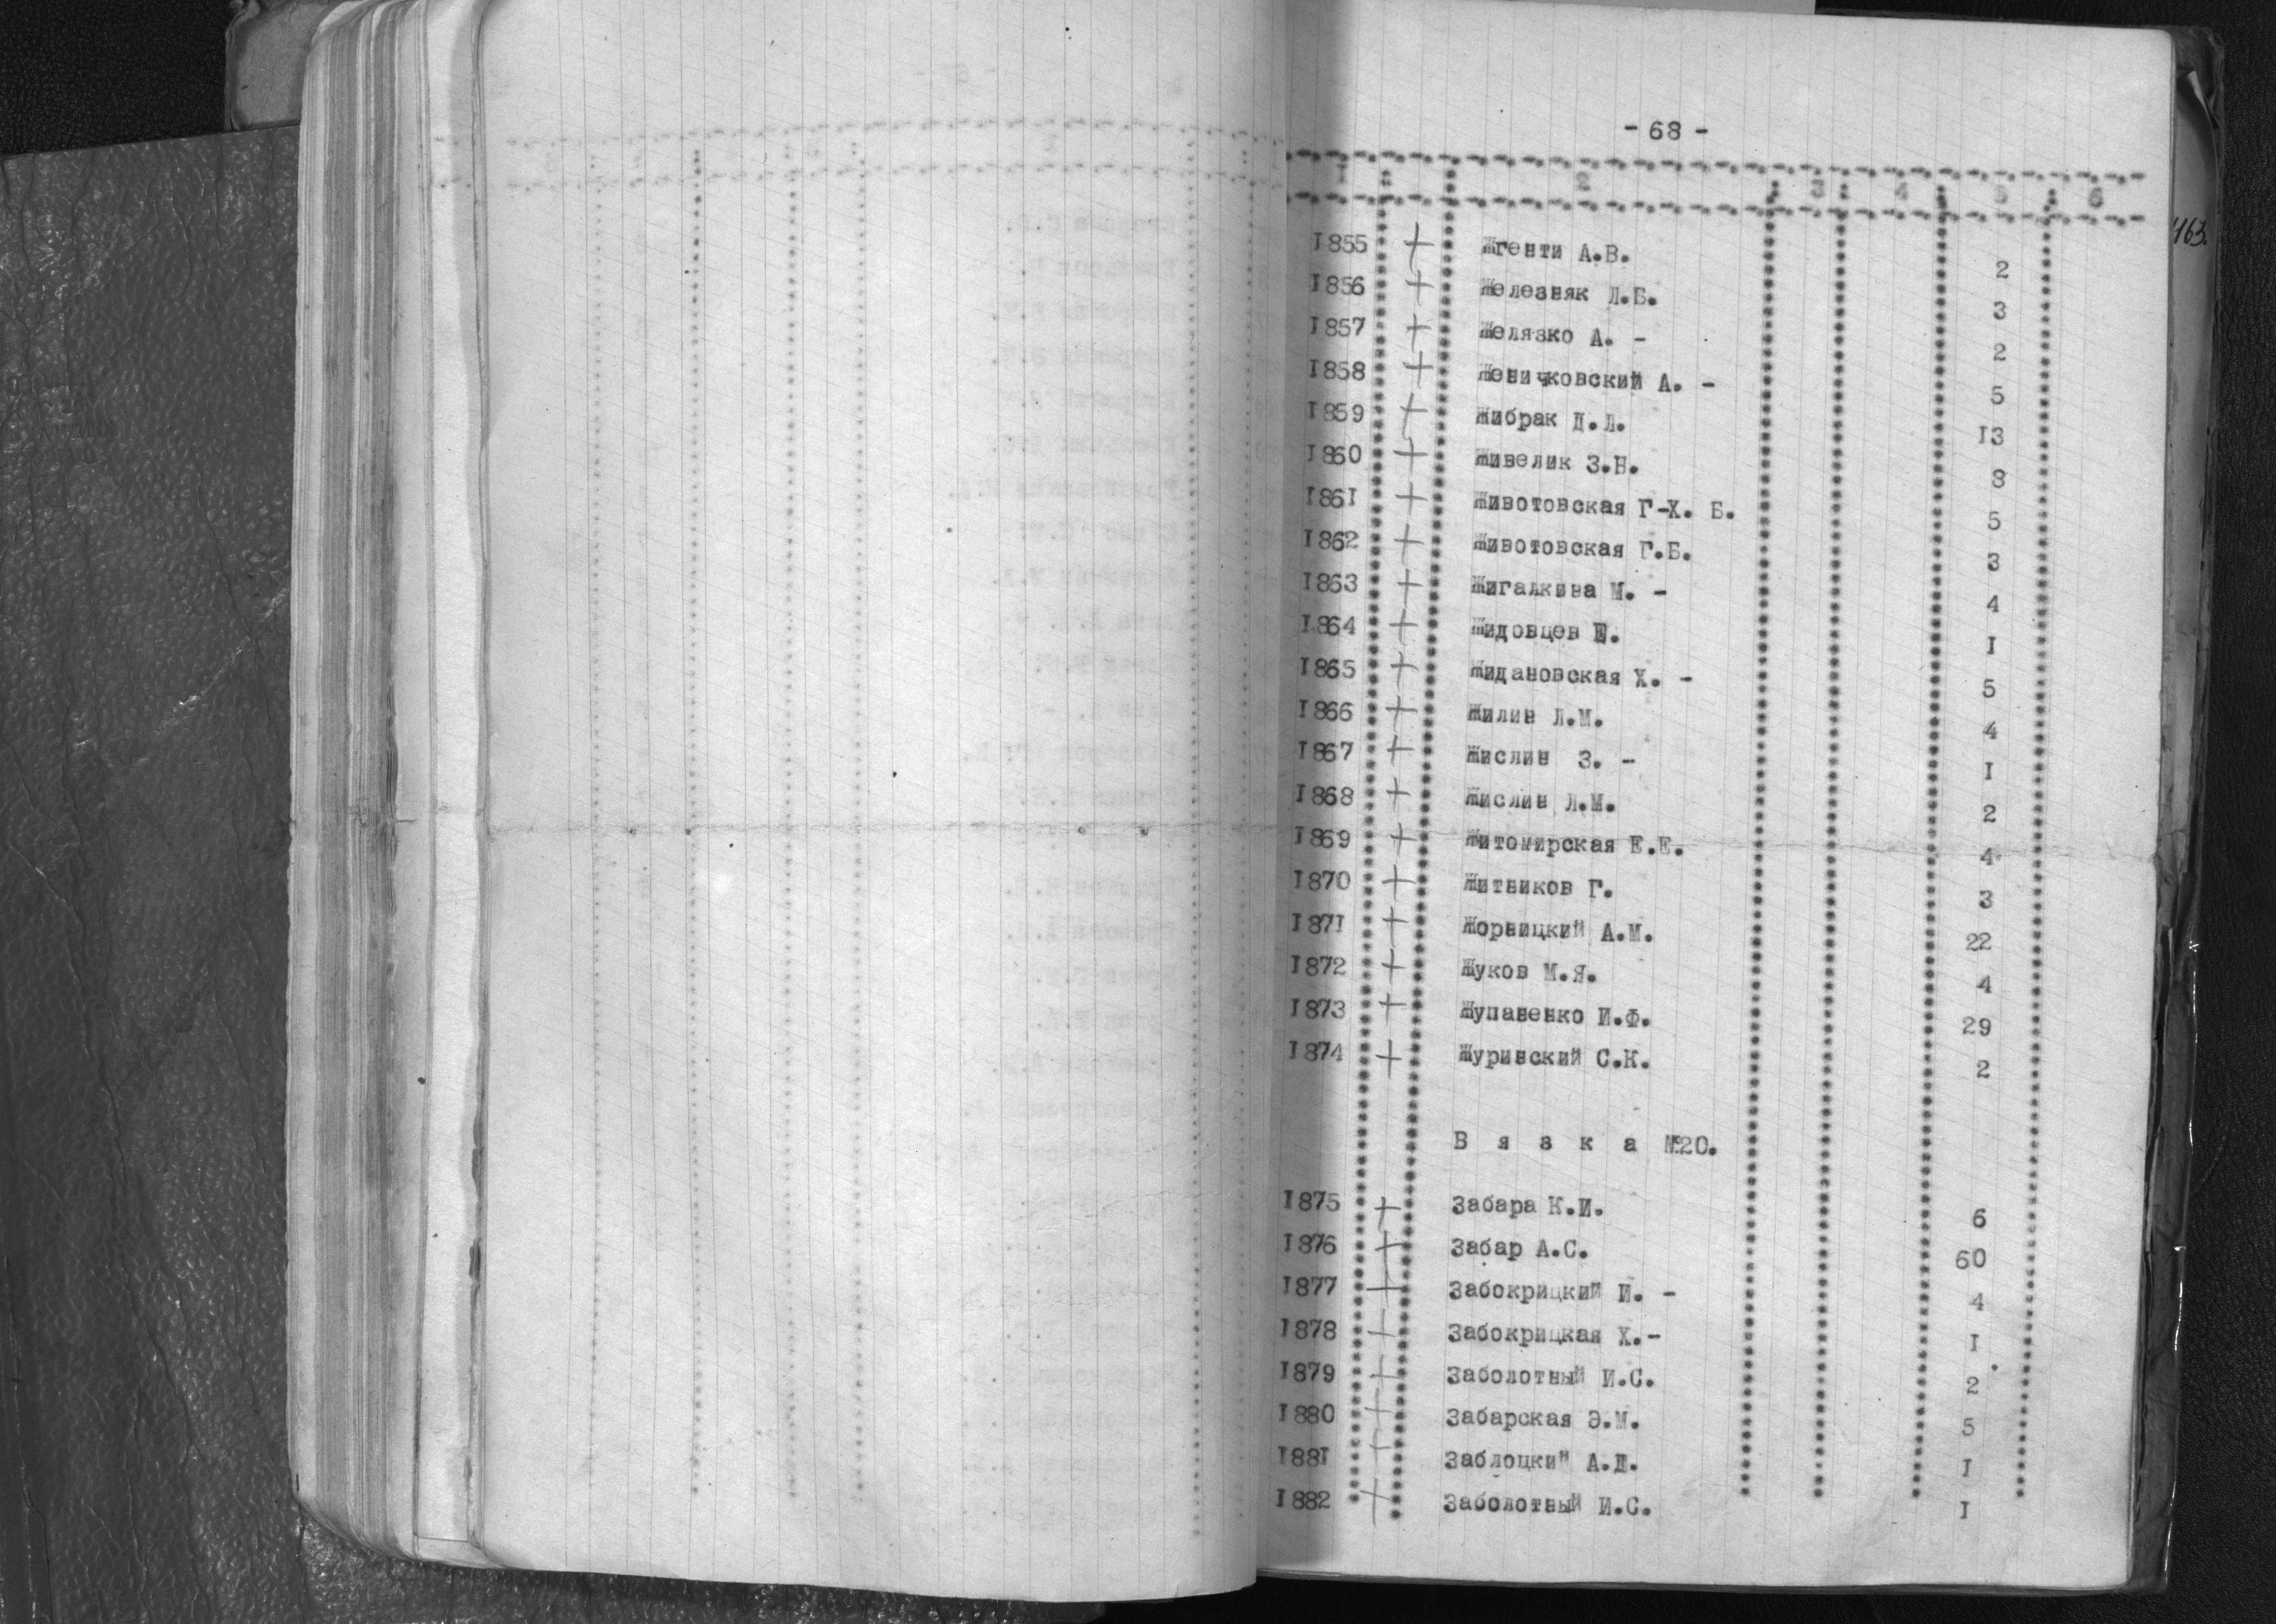 - 68 -
1 2 3 4 5 6
463.
1855 + Жгенти А.В. 2
1856 + Железняк Л.Б. 3
1857 + Желязко А. - 2
1858 + Женичковский А. - 5
1859 + Жибрак Д.Л. 13
1860 + Живелик З.Н. 8
1861 + Животовская Г-Х. Б. 5
1862 + Животовская Г.Б. 3
1863 + Жигалкина М. - 4
1864 + Жидовцев Е. 1
1865 + Жидановская Х. - 5
1866 + Жилин Л.М. 4
1867 + Жислин З. - 1
1868 + Жислин Л.М. 2
1869 + Житомирская Е.Е. 4
1870 + Житников Г. 3
1871 + Жорницкий А.М. 22
1872 + Жуков М.Я. 4
1873 + Жупаненко И.Ф. 29
1874 + Журинский С.К. 2
В я з к а №20.
1875 + Забара К.И. 6
1876 + Забар А.С. 60
1877 + Забокрицкий И. - 4
1878 + Забокрицкая Х.- 1
1879 + Заболотный И.С. 2
1880 + Забарская Э.М. 5
1881 + Заблоцкий А.Д. 1
1882 + Заболотный И.С. 1